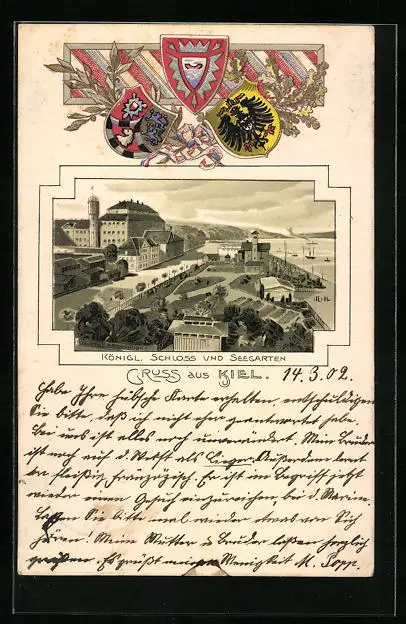 KÖNIGL. SCHLOSS UND SEEGARTEN
GRUSS AUS KIEL. 14.3.02.
Habe Ihre hübsche Karte erhalten, entschuldigen
Sie bitte, daß ich nicht eher geantwortet habe.
Bei uns ist alles noch unverändert. Mein Bruder
ist noch auf d. Werft als Außerdem lernt
er fleißig Französisch. Er ist im Begriff jetzt
wieder einen Gesuch einzureichen bei d. Marine.
Lassen Sie bitte mal wieder etwas von Sich
hören! Meine Mutter u Bruder laßen herzlich
grüßen. Es grüßt meine Wenigkeit M. Popp.